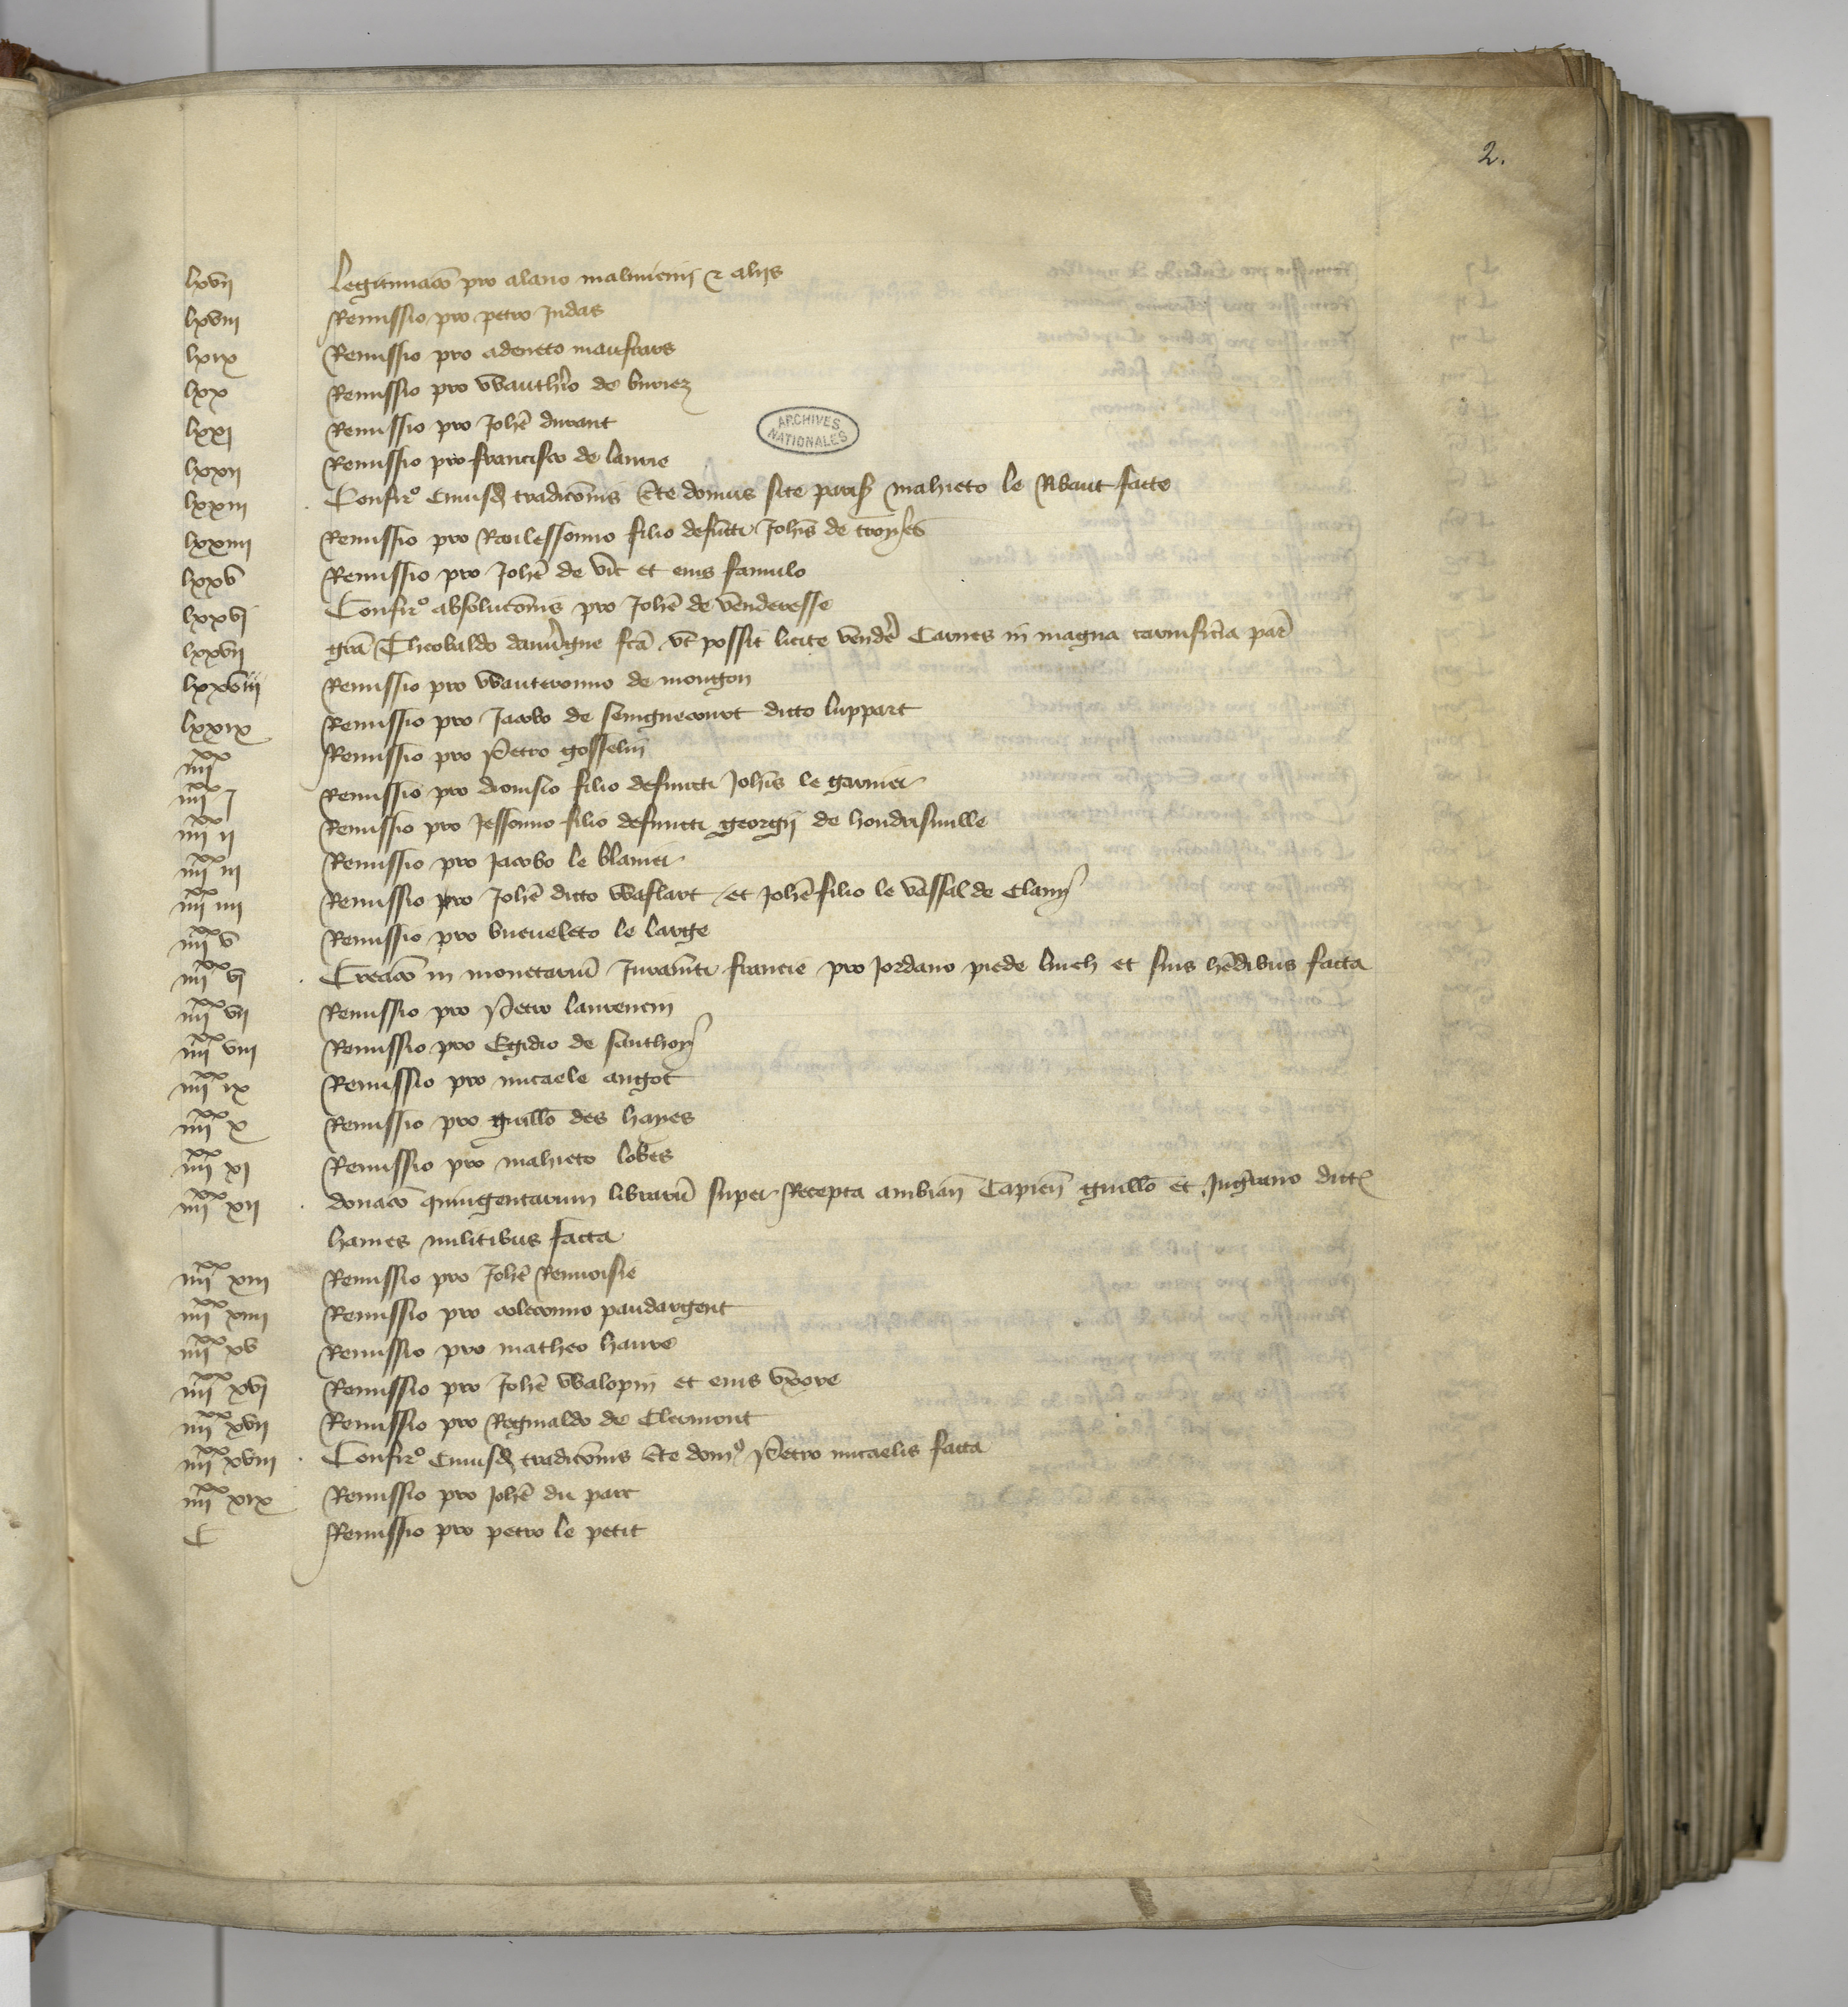 2.
lxvii Legitimacõ pro alano malimenij & alijs
lxviii Remissio pro petro Judas
lxix Remissio pro adeneto maufrars
lxx Remissio pro Wauthĩo de buriez
lxxi Remissio pro Johẽ durant
ARCHIVES NATIONALES
lxxii Remissio pro francisco de laurie
lxxiii Confirº cuiusdã tradicõnis cẽte domus site parisz mahieto le Ribaut facte
lxxiiii Remissio pro Raulessonno filio defũcti Johĩs de troyses
lxxv Remissio pro Johẽ de vĩc et eius famulo
lxxvi Confirº absolucõnis pro Johẽ de venderesse
lxxvii grã Theobaldo dauv̾gne fcã vt possit licite vendẽ Carnes in magna carnifĩcia par̃
lxxviii Remissio pro Wauteronno de mongon
lxxix Remissio pro Jacobo de seuignecourt dicto luppart
iiii xx Remissio pro Petro gosselin
iiii xx i Remissio pro dionisio filio defuncti Johĩs le garnier
iiii xx ii Remissio pro Jessonno filio defuncti georgij de houdrisuille
iiii xx iii Remissio pro Jacobo le blanier
iiii xx iiii Remissio pro Johẽ dicto Waflart et Johẽ filio le vassal de Clamy
iiii xx v Remissio pro bueueleto le large
iiii xx vi Creacõ in monetariũ Juramẽti francie pro Jordano piede luch et suis hẽdibus facta
iiii xx vii Remissio pro Petro laurencin
iiii xx viii Remissio pro Egidio de santhoy
iiii xx ix Remissio pro micaele angot
iiii xx x Remissio pro guillõ des hayes
iiii xx xi Remissio pro mahieto lobes
iiii xx xii donacõ quingentarum librarũ super Recepta ambiañ Capieñ guillõ et Jug̾rano dictis
hames militibus facta
iiii xx xiii Remissio pro Johẽ Renuoisie
iiii xx xiiii Remissio pro colesonno paudargent
iiii xx xv Remissio pro matheo haure
iiii xx xvi Remissio pro Johẽ Walopin et eius vxore
iiii xx xvii Remissio pro Reginaldo de Clermont
iiii xx xviii Confirº cuiusdã tradicõnis cẽte domº Petro micaelis facta
iiii xx xix Remissio pro Johẽ du parc
C Remissio pro petro le petit